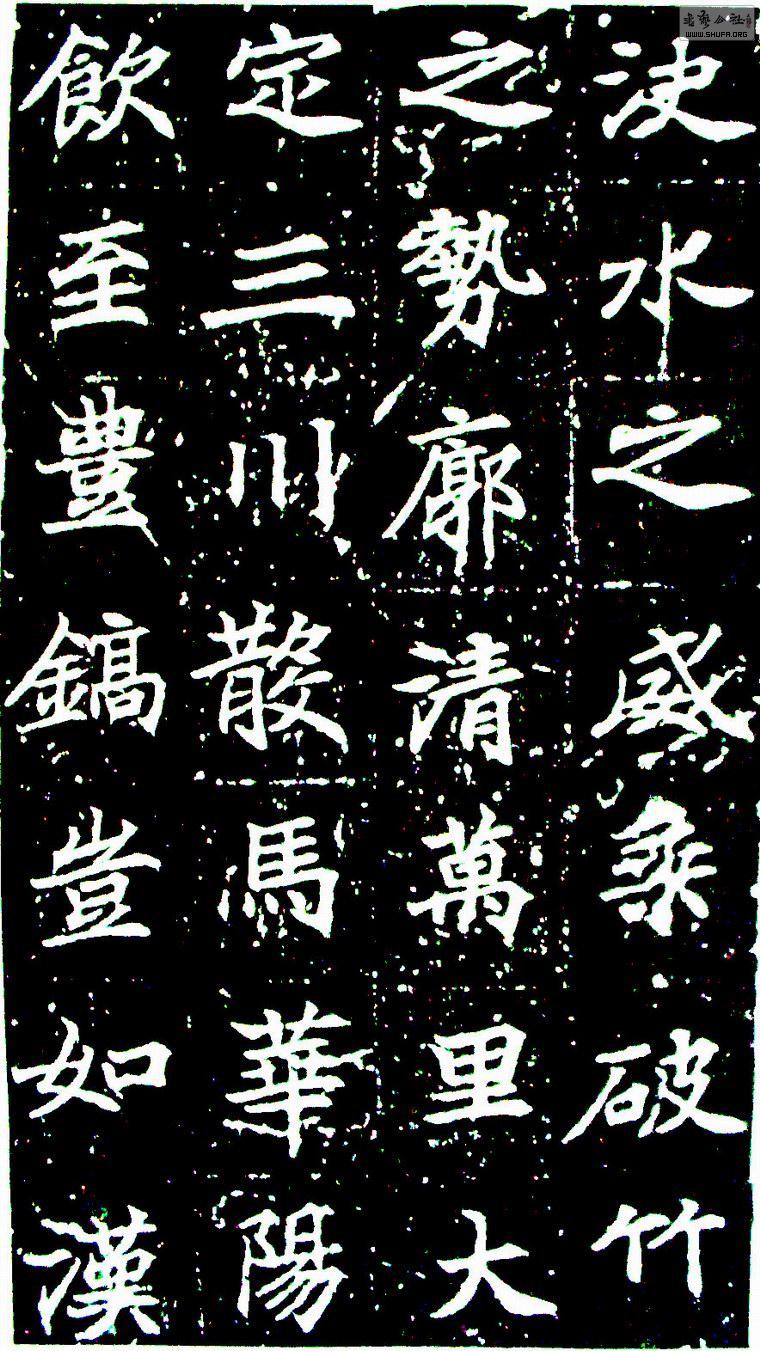 決水之威乘破竹
之勢廓清萬里大
定三川散馬華陽
飲至豐鎬豈如漢
WWW.SHUFA.ORG